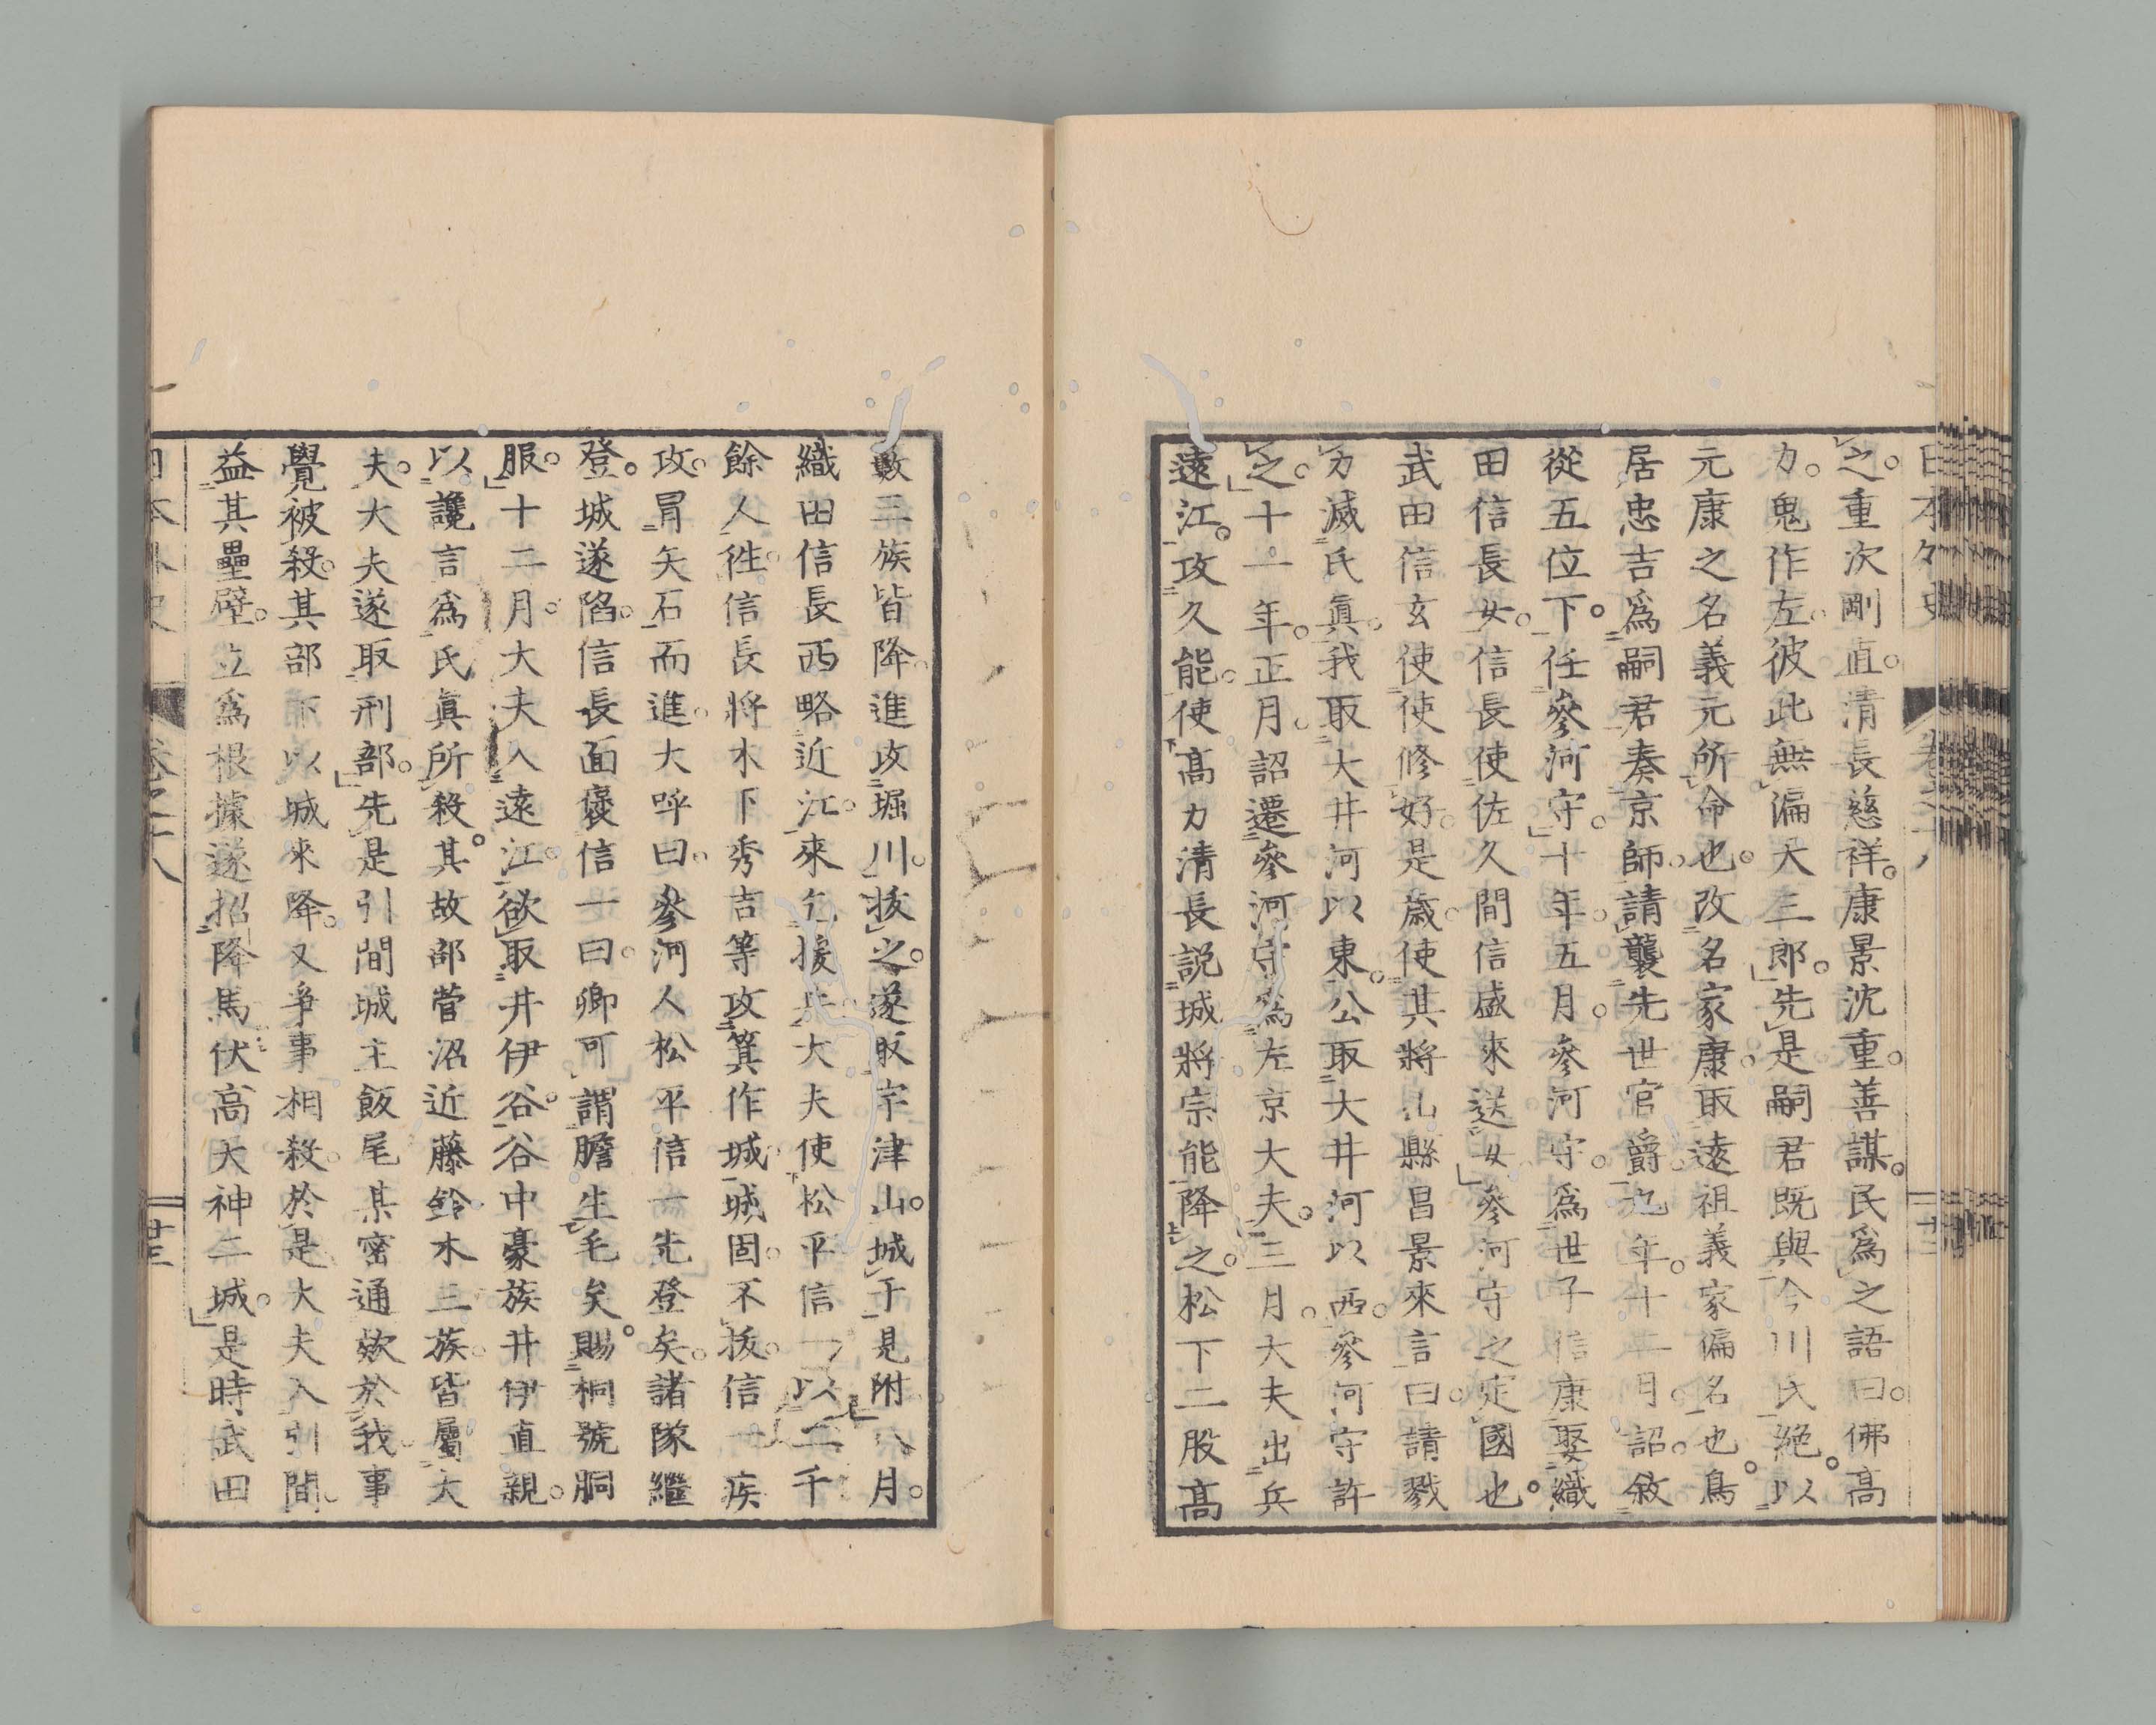 之。重次剛直。清長慈祥。康景沈重。善謀。民爲之語曰。佛高
力。鬼作左。彼此無偏天三郎。先是嗣君既與今川氏絶。以
元康之名義元所命也。改名家康。取遠祖義家偏名也。鳥
居忠吉爲嗣君奏京師。請襲先世官爵。九年十二月。詔敘
從五位下。任參河守。十年。五月。參河守。爲世子信康娶織
田信長女。信長使佐久間信盛來送女。參河守之定國也。
武田信玄使使修好。是歳。使其將山縣昌景來言曰。請戮
力滅氏眞。我取大井河以東。公取大井河以西。參河守許
之。十一年。正月。詔遷參河守爲左京大夫。三月。大夫出兵
遠江。攻久能。使高力清長説城將宗能降之。松下二股高
數三族皆降。進攻堀川。拔之。遂取宇津山。城于見附。八月。
織田信長西略近江。來乞援兵。大夫使松平信一以二千
餘人徃。信長將木下秀吉等攻箕作城。城固。不拔。信一疾
攻。冒矢石而進。大呼曰。參河人松平信一先登矣。諸隊繼
登。城遂陷。信長面襃信一曰。卿可謂膽生毛矣。賜桐號胴
服。十二月。大夫入遠江。欲取井伊谷。谷中豪族井伊直親。
以讒言爲氏眞所殺。其故部菅沼近藤鈴木三族。皆屬大
夫。大夫遂取刑部。先是引間城主飯尾某密通欵於我。事
覺被殺。其部下以城來降。又爭事相殺。於是大夫入引間。
益其壘壁。立爲根據。遂招降馬伏高天神二城。是時武田
日本外史 卷之十八 廿三